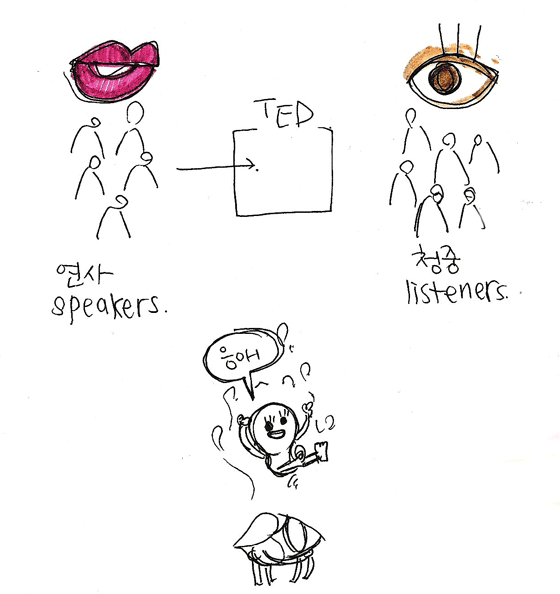 TED
연사
speakers.
청중
listeners.
응애